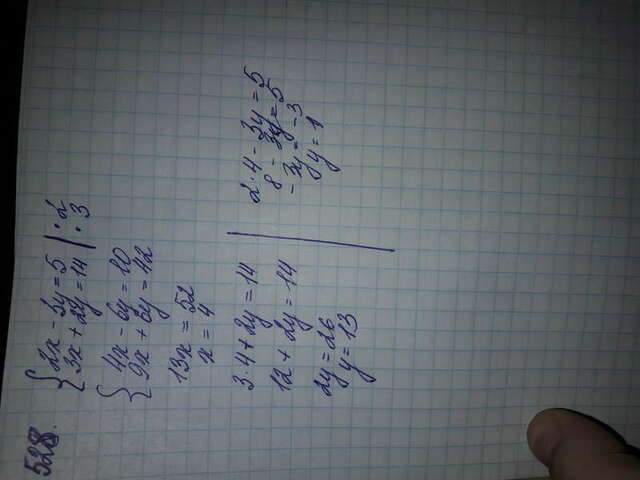 528.
{2x - 3y = 5 | · 2
3x + 2y = 14 | · 3
{4x - 6y = 10
9x + 6y = 42
13x = 52
x = 4
3 · 4 + 2y = 14
12 + 2y = 14
2y = 26
y = 13
2 · 4 - 3y = 5
8 - 3y = 5
- 3y = -3
y = 1